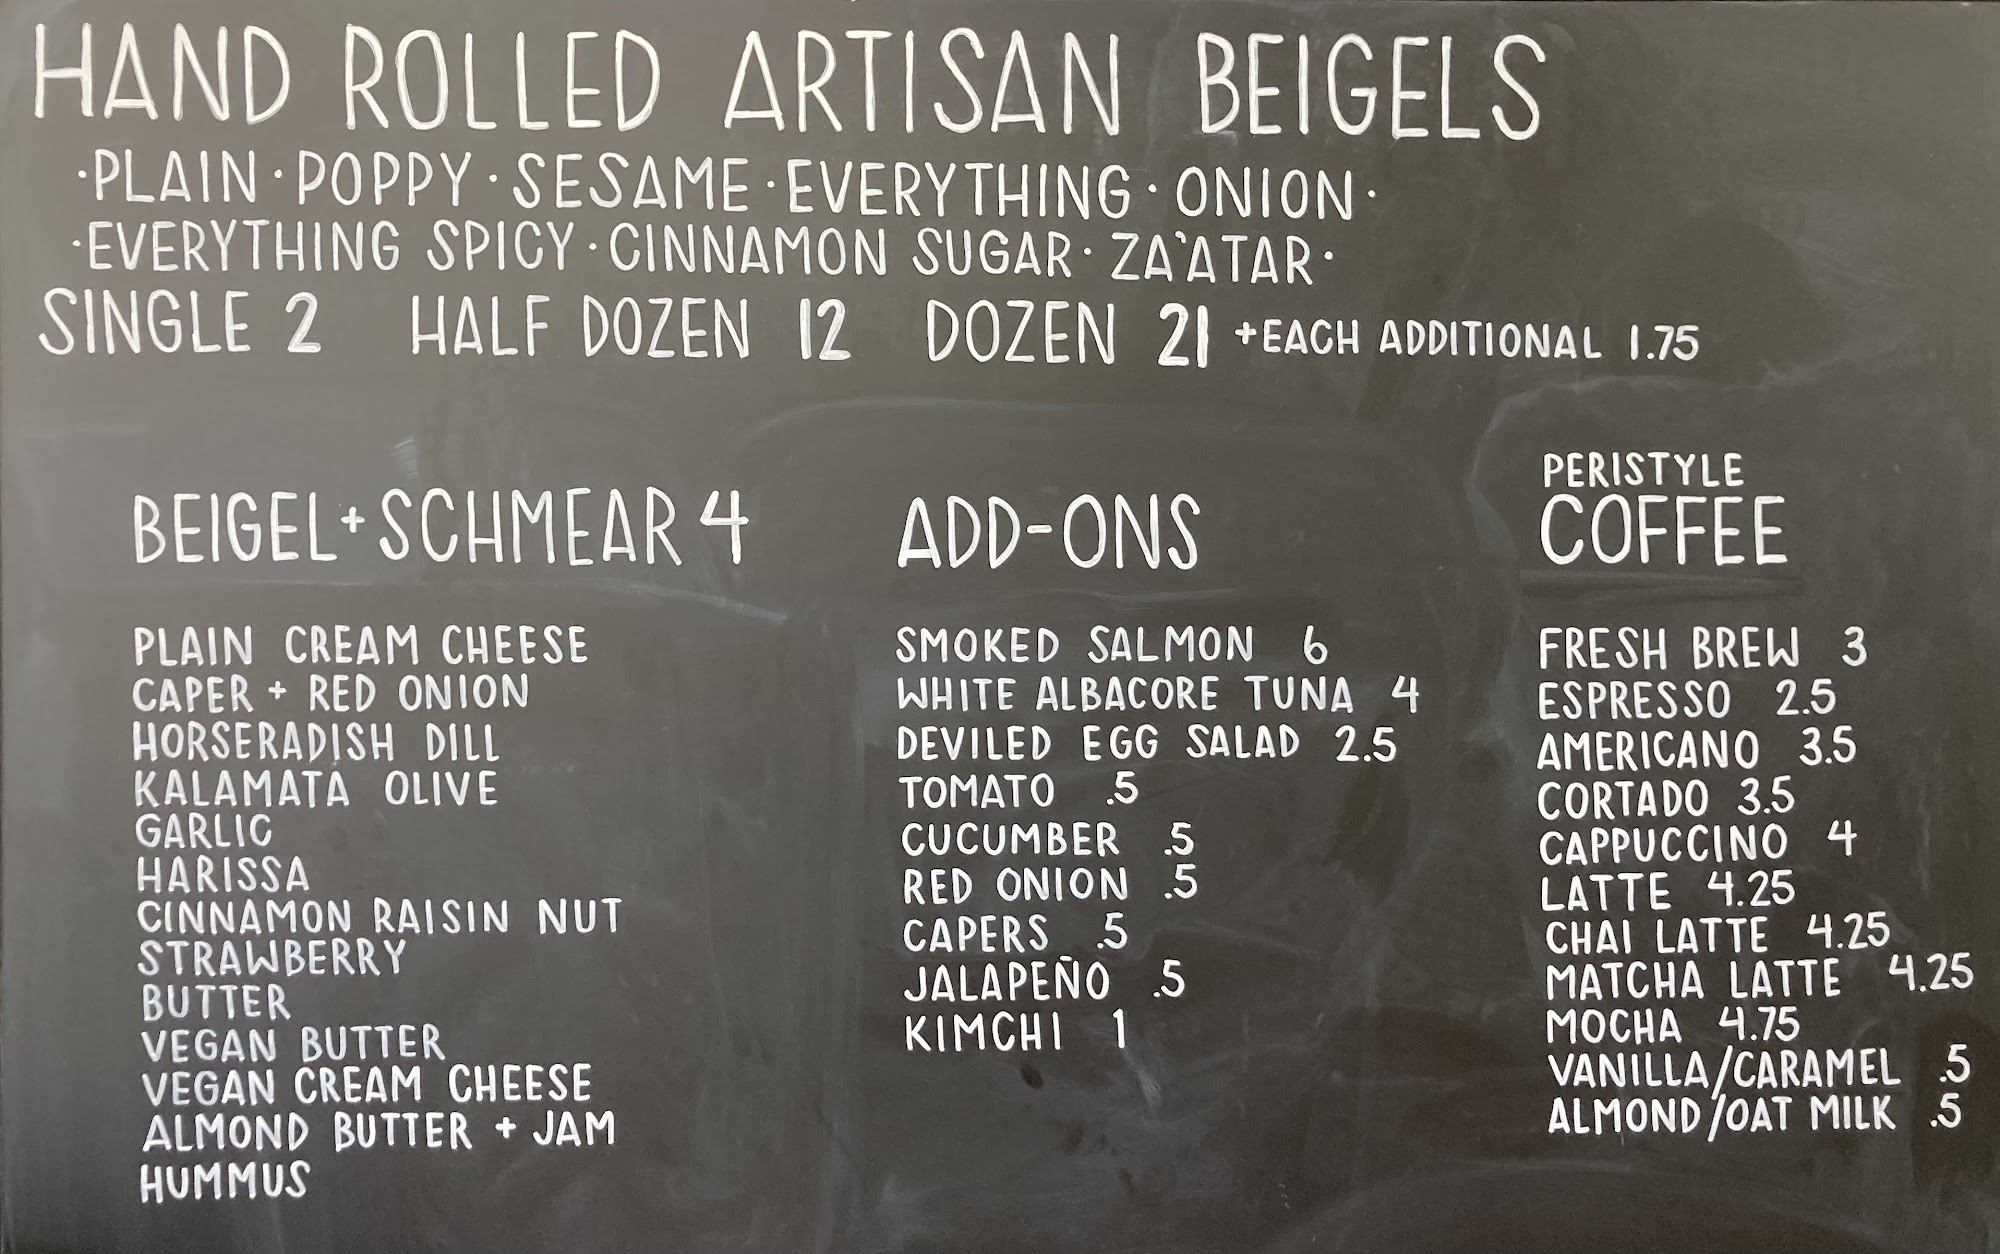 HAND ROLLED ARTISAN BEIGELS
·PLAIN·POPPY·SESAME·EVERYTHING·ONION·
·EVERYTHING SPICY·CINNAMON SUGAR·ZA'ATAR·
SINGLE 2 HALF DOZEN 12 DOZEN 21 +EACH ADDITIONAL 1.75
BEIGEL+SCHMEAR 4
PLAIN CREAM CHEESE
CAPER + RED ONION
HORSERADISH DILL
KALAMATA OLIVE
GARLIC
HARISSA
CINNAMON RAISIN NUT
STRAWBERRY
BUTTER
VEGAN BUTTER
VEGAN CREAM CHEESE
ALMOND BUTTER + JAM
HUMMUS
ADD-ONS
SMOKED SALMON 6
WHITE ALBACORE TUNA 4
DEVILED EGG SALAD 2.5
TOMATO .5
CUCUMBER .5
RED ONION .5
CAPERS .5
JALAPEÑO .5
KIMCHI 1
PERISTYLE
COFFEE
FRESH BREW 3
ESPRESSO 2.5
AMERICANO 3.5
CORTADO 3.5
CAPPUCCINO 4
LATTE 4.25
CHAI LATTE 4.25
MATCHA LATTE 4.25
MOCHA 4.75
VANILLA/CARAMEL .5
ALMOND/OAT MILK .5